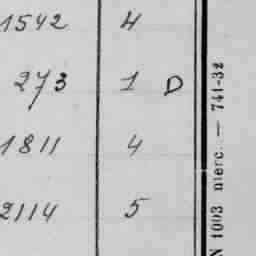 1542 4
273 1 D
1811 4
2114 5
N 1003 nierc. — 741-32